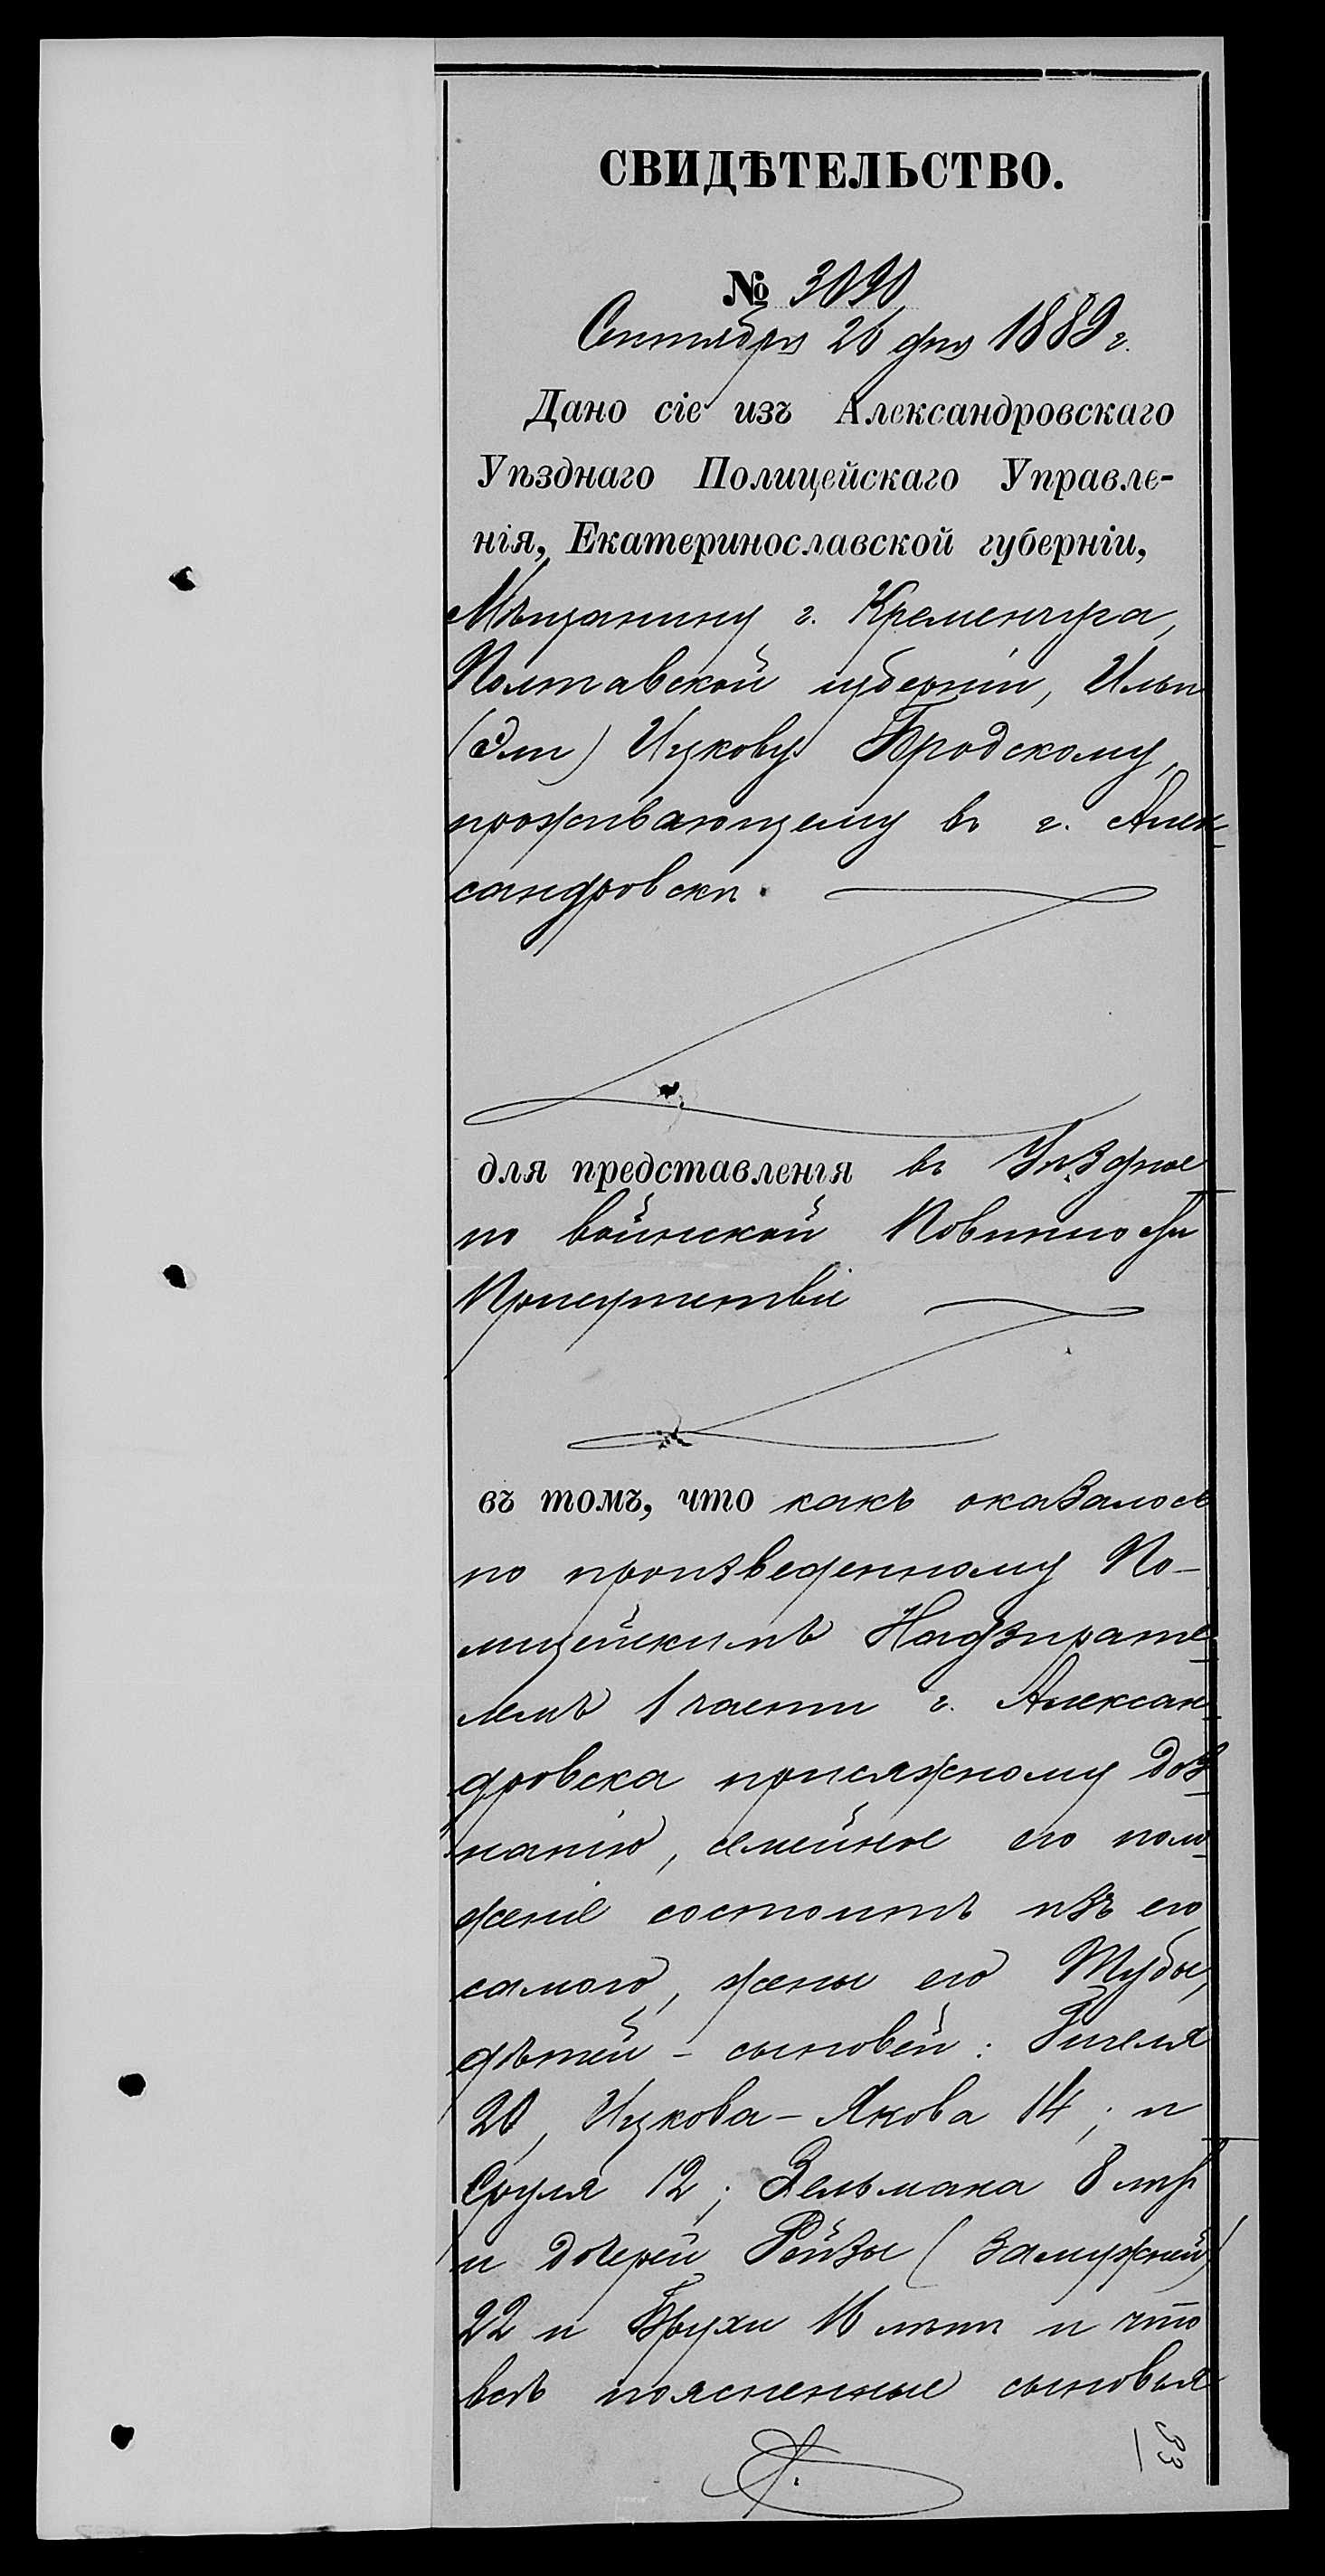 СВИДѢТЕЛЬСТВО.
№ 3090
Сентября 26 дня 1889 г.
Дано сіе изъ Александровскаго
Уѣзднаго Полицейскаго Управле-
нія, Екатеринославской губерніи,
Мѣщанину г. Кременчуга,
Полтавской губерніи, Ильи
(Эли) Ицкову Бродскому,
проживающему въ г. Алек-
сандровскѣ.
для представленія въ Уѣздное
по воинской Повинности
Присутствіе
въ томъ, что какъ оказалось
по произведенному По-
лицейскимъ Надзирате-
лемъ 1 части г. Алексан-
дровска присяжному доз-
нанію, семейное его поло-
женіе состоитъ изъ его
самого, жены его Тубы,
дѣтей - сыновей:
20, Ицкова-Якова 14; и
Сруля 12; Зельмана 8 лѣт
и дочерей Рейзы (замужней)
22 и Брухи 16 лѣтъ и что
всѣ поясненные сыновья
33